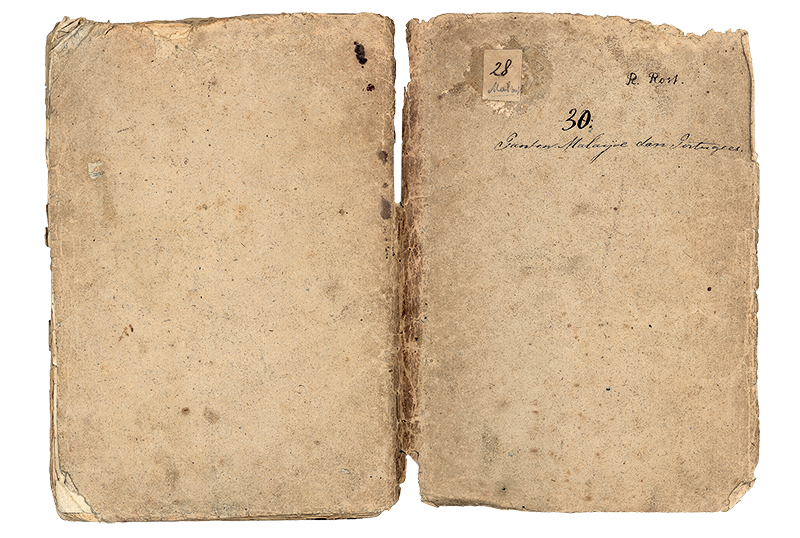 28
Malay
R. Rost.
30.
Panton Malaijoe dan Portugees.